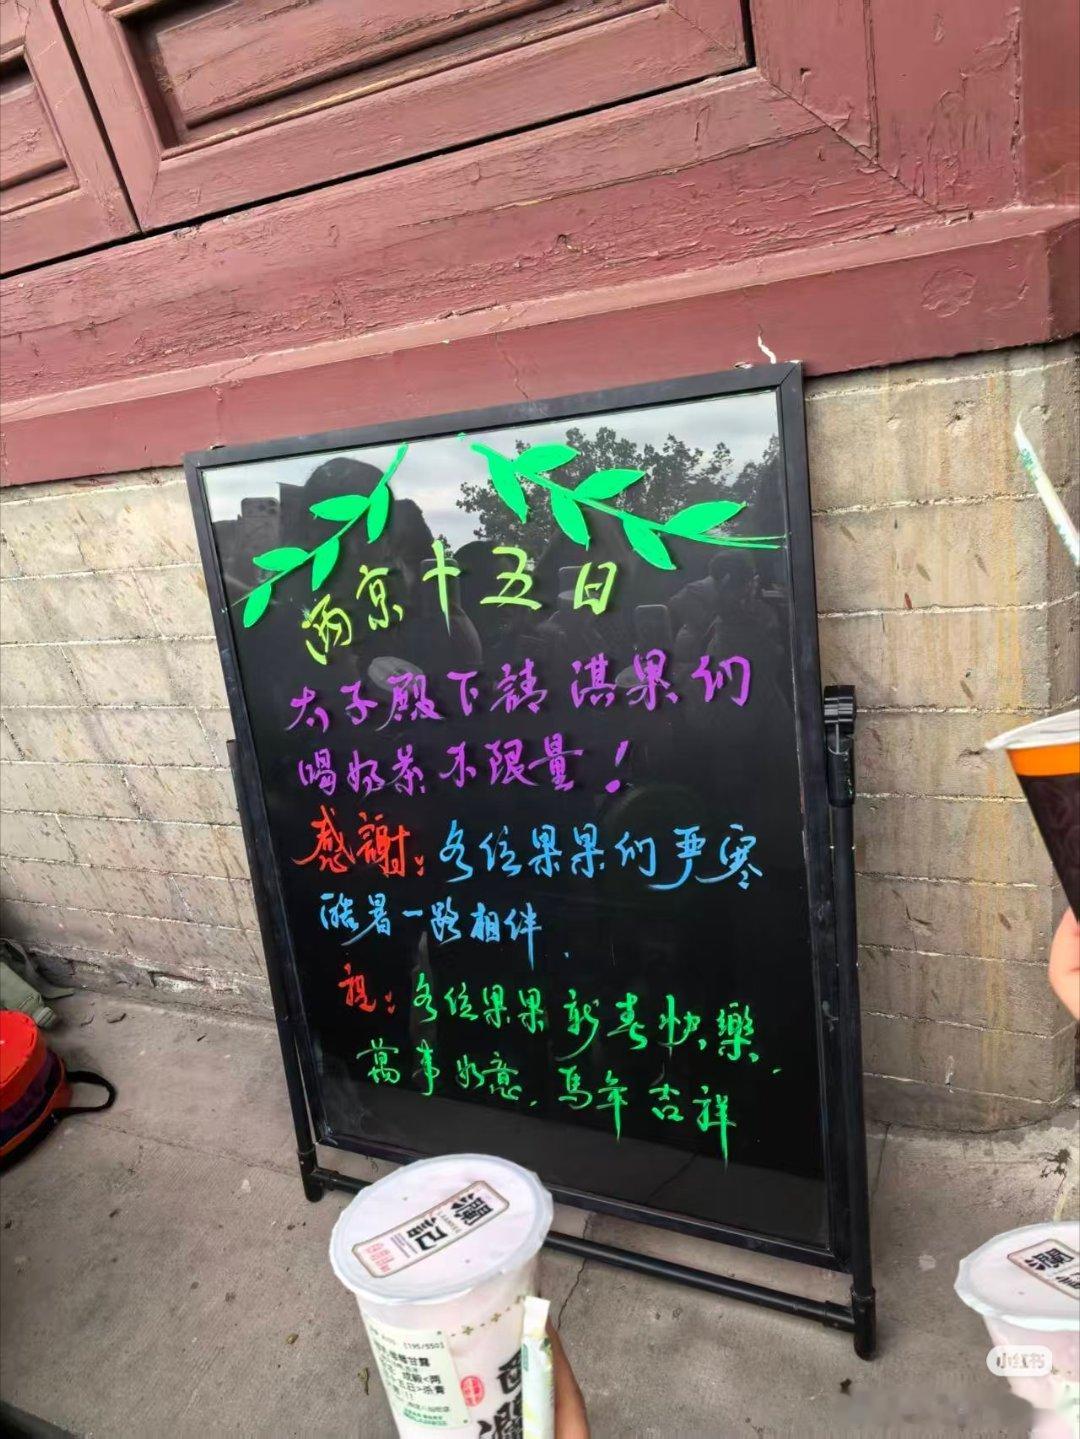 两京十五日
太子殿下請淇果们
喝奶茶不限量！
感謝：各位果果们严寒
酷暑一路相伴.
祝：各位果果新春快樂.
萬事如意.馬年吉祥
[195/550]
小红书